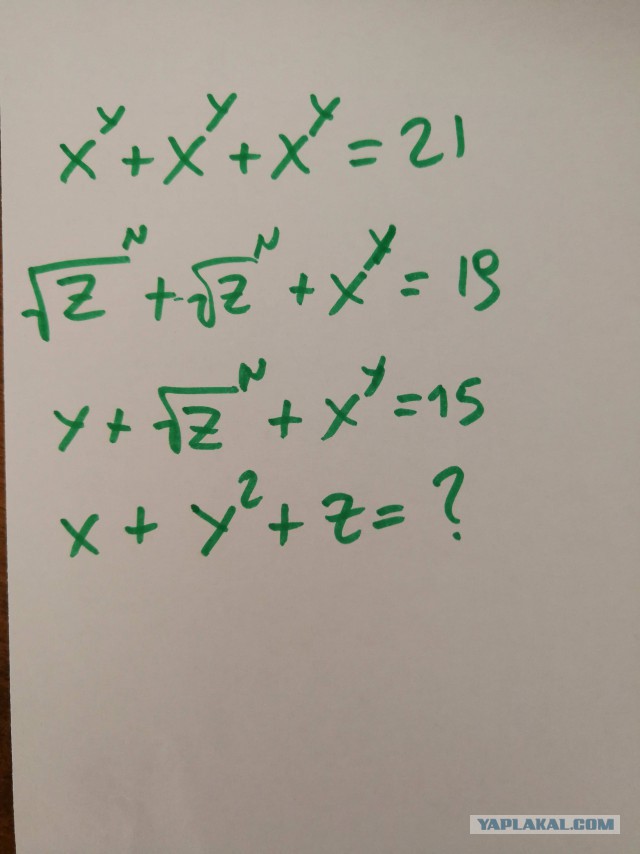 x^y + x^y + x^y = 21
√z^N + √z^N + x^y = 19
y + √z^N + x^y = 15
x + y^2 + z = ?
YAPLAKAL.COM